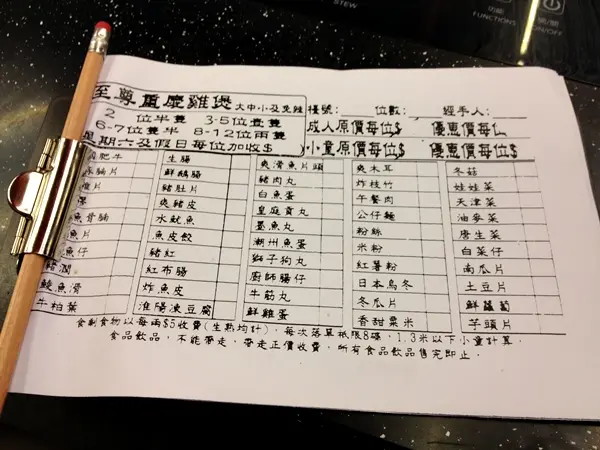 STEW
功能
FUNCTIONS
ON/OFF
至尊重慶雞煲 大中小及免辣
2 位半隻 3-5位壹隻
6-7位隻半 8-12位兩隻
星期六及假日每位加收$
檯號: 位數: 經手人:
成人原價每位$ 優惠價每位
小童原價每位$ 優惠價每位$
肥牛 生腸 爽滑魚片頭 爽木耳 冬菇
鮮鵝腸 豬肉丸 炸枝竹 娃娃菜
片 豬肚片 白魚蛋 午餐肉 天津菜
爽豬皮 皇庭貢丸 公仔麵 油麥菜
水魷魚 墨魚丸 粉絲 唐生菜
魚片 魚皮餃 潮州魚蛋 米粉 白菜仔
魚仔 豬紅 獅子狗丸 紅薯粉 南瓜片
豬潤 紅布腸 廚師腸仔 日本烏冬 土豆片
鯪魚滑 炸魚皮 牛筋丸 冬瓜片 鮮蘿蔔
牛柏葉 淮陽凍豆腐 鮮雞蛋 香甜粟米 芋頭片
食剩食物以每兩$5收費(生熟均計), 每次落單祇限8碟, 1.3米以下小童計算.
食品飲品, 不能帶走, 帶走正價收費, 所有食品飲品售完即止.